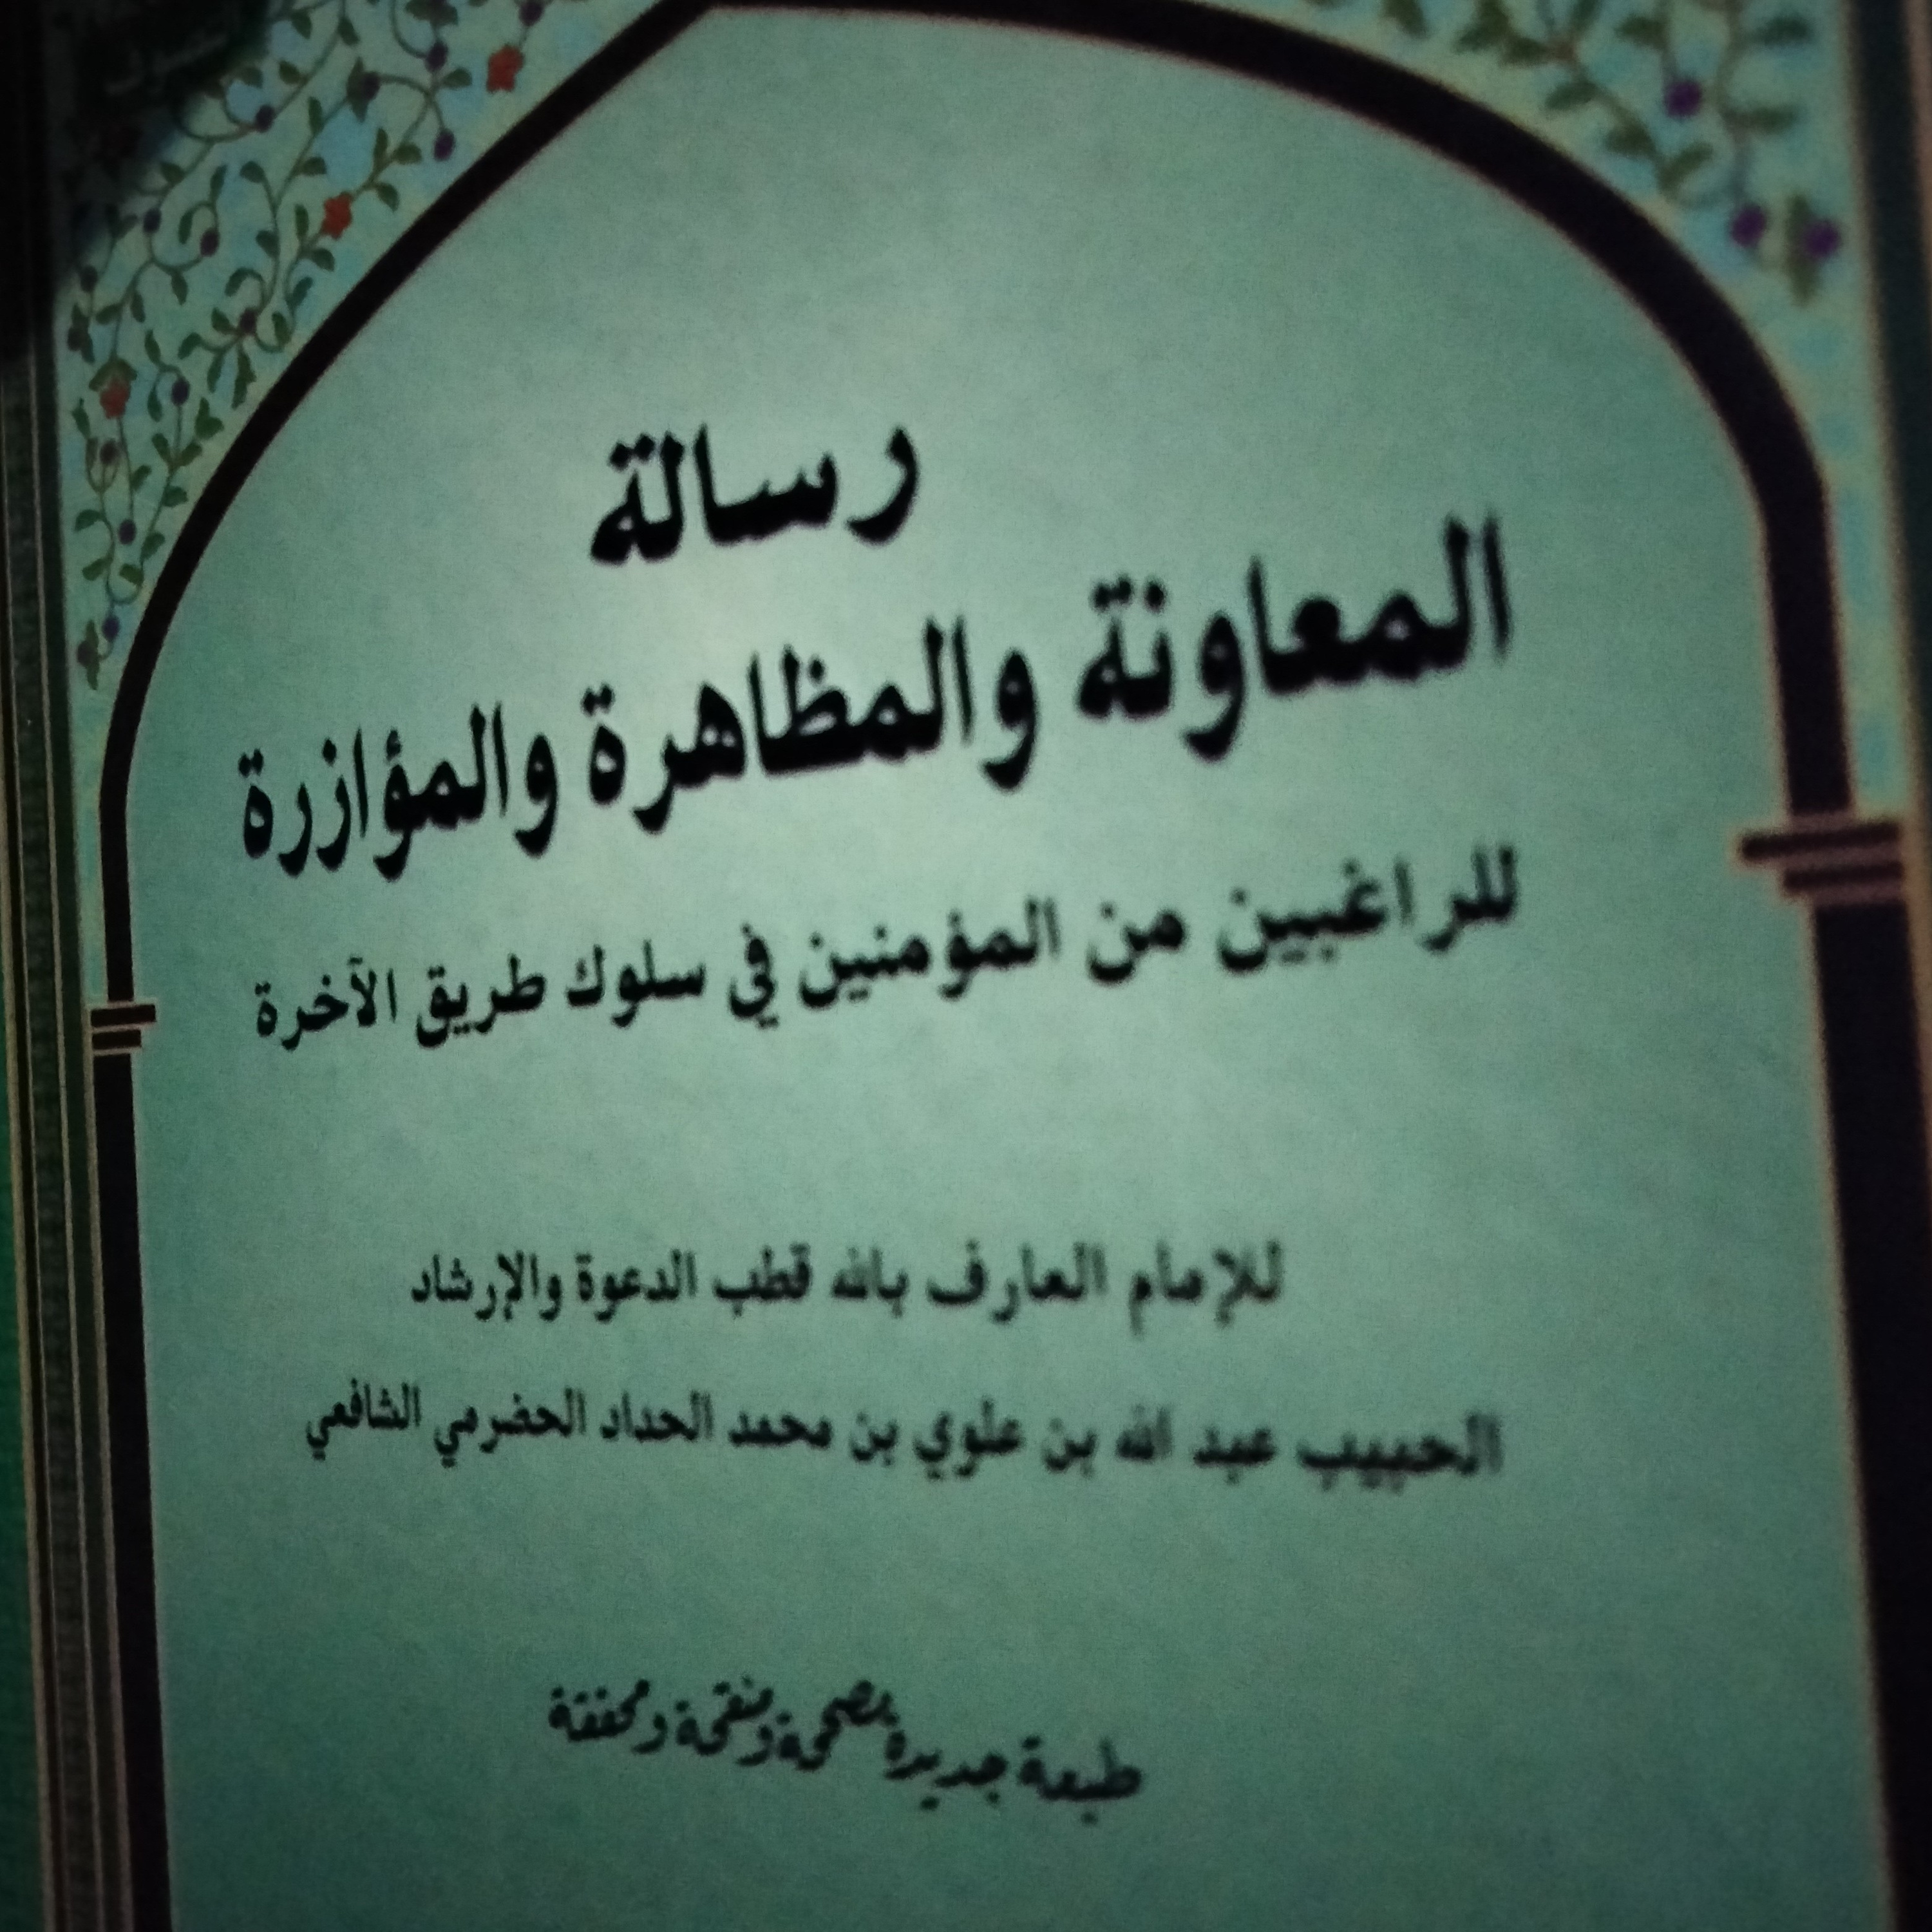 رسالة
المعاونة والمظاهرة والمؤازرة
للراغبين من المؤمنين في سلوك طريق الآخرة
للإمام العارف بالله قطب الدعوة والإرشاد
الحبيب عبد الله بن علوي بن محمد الحداد الحضرمي الشافعي
طبعة جديدة مصححة ومنقحة ومحققة